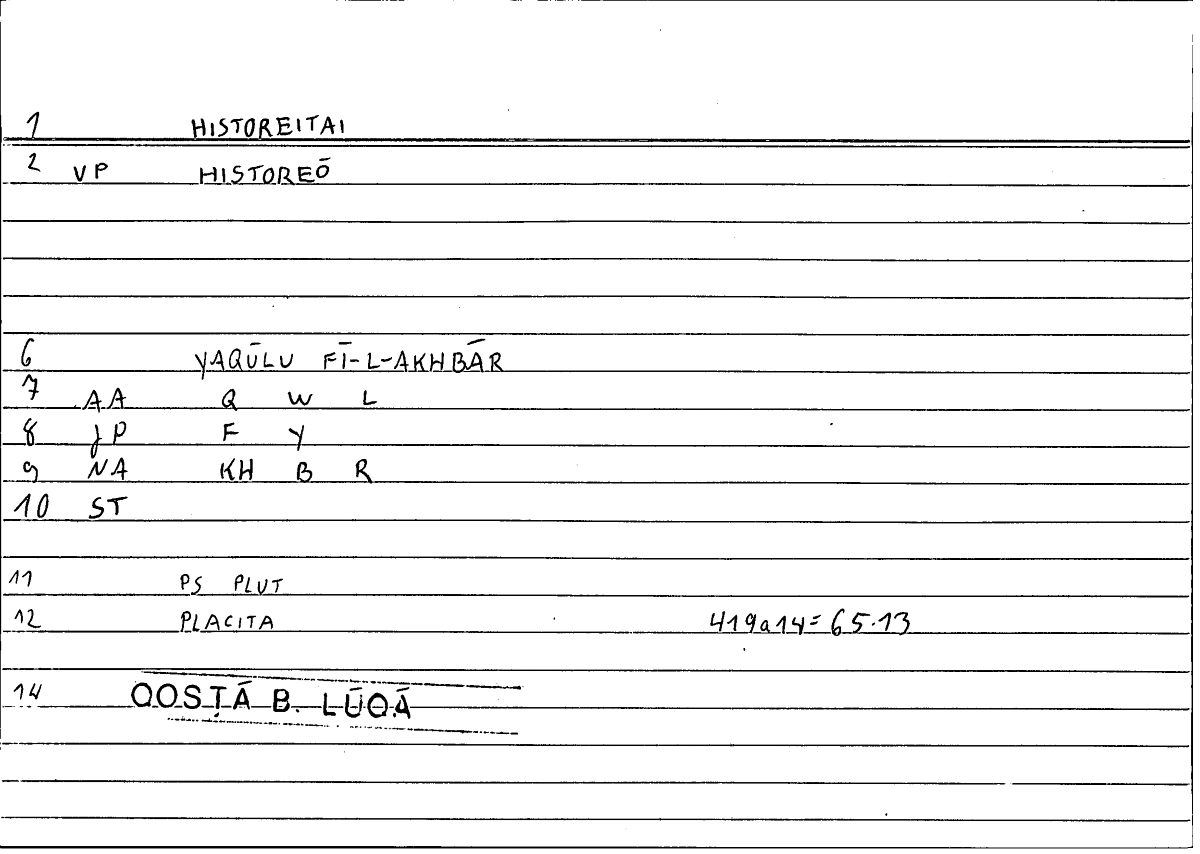 1 HISTOREITAI
2 VP HISTOREŌ
6 YAQŪLU FĪ-L-AKHBĀR
7 AA Q W L
8 JP F Y
9 NA KH B R
10 ST
11 PS PLUT
12 PLACITA 419a14=65.13
14 QOSṬĀ B. LŪQĀ